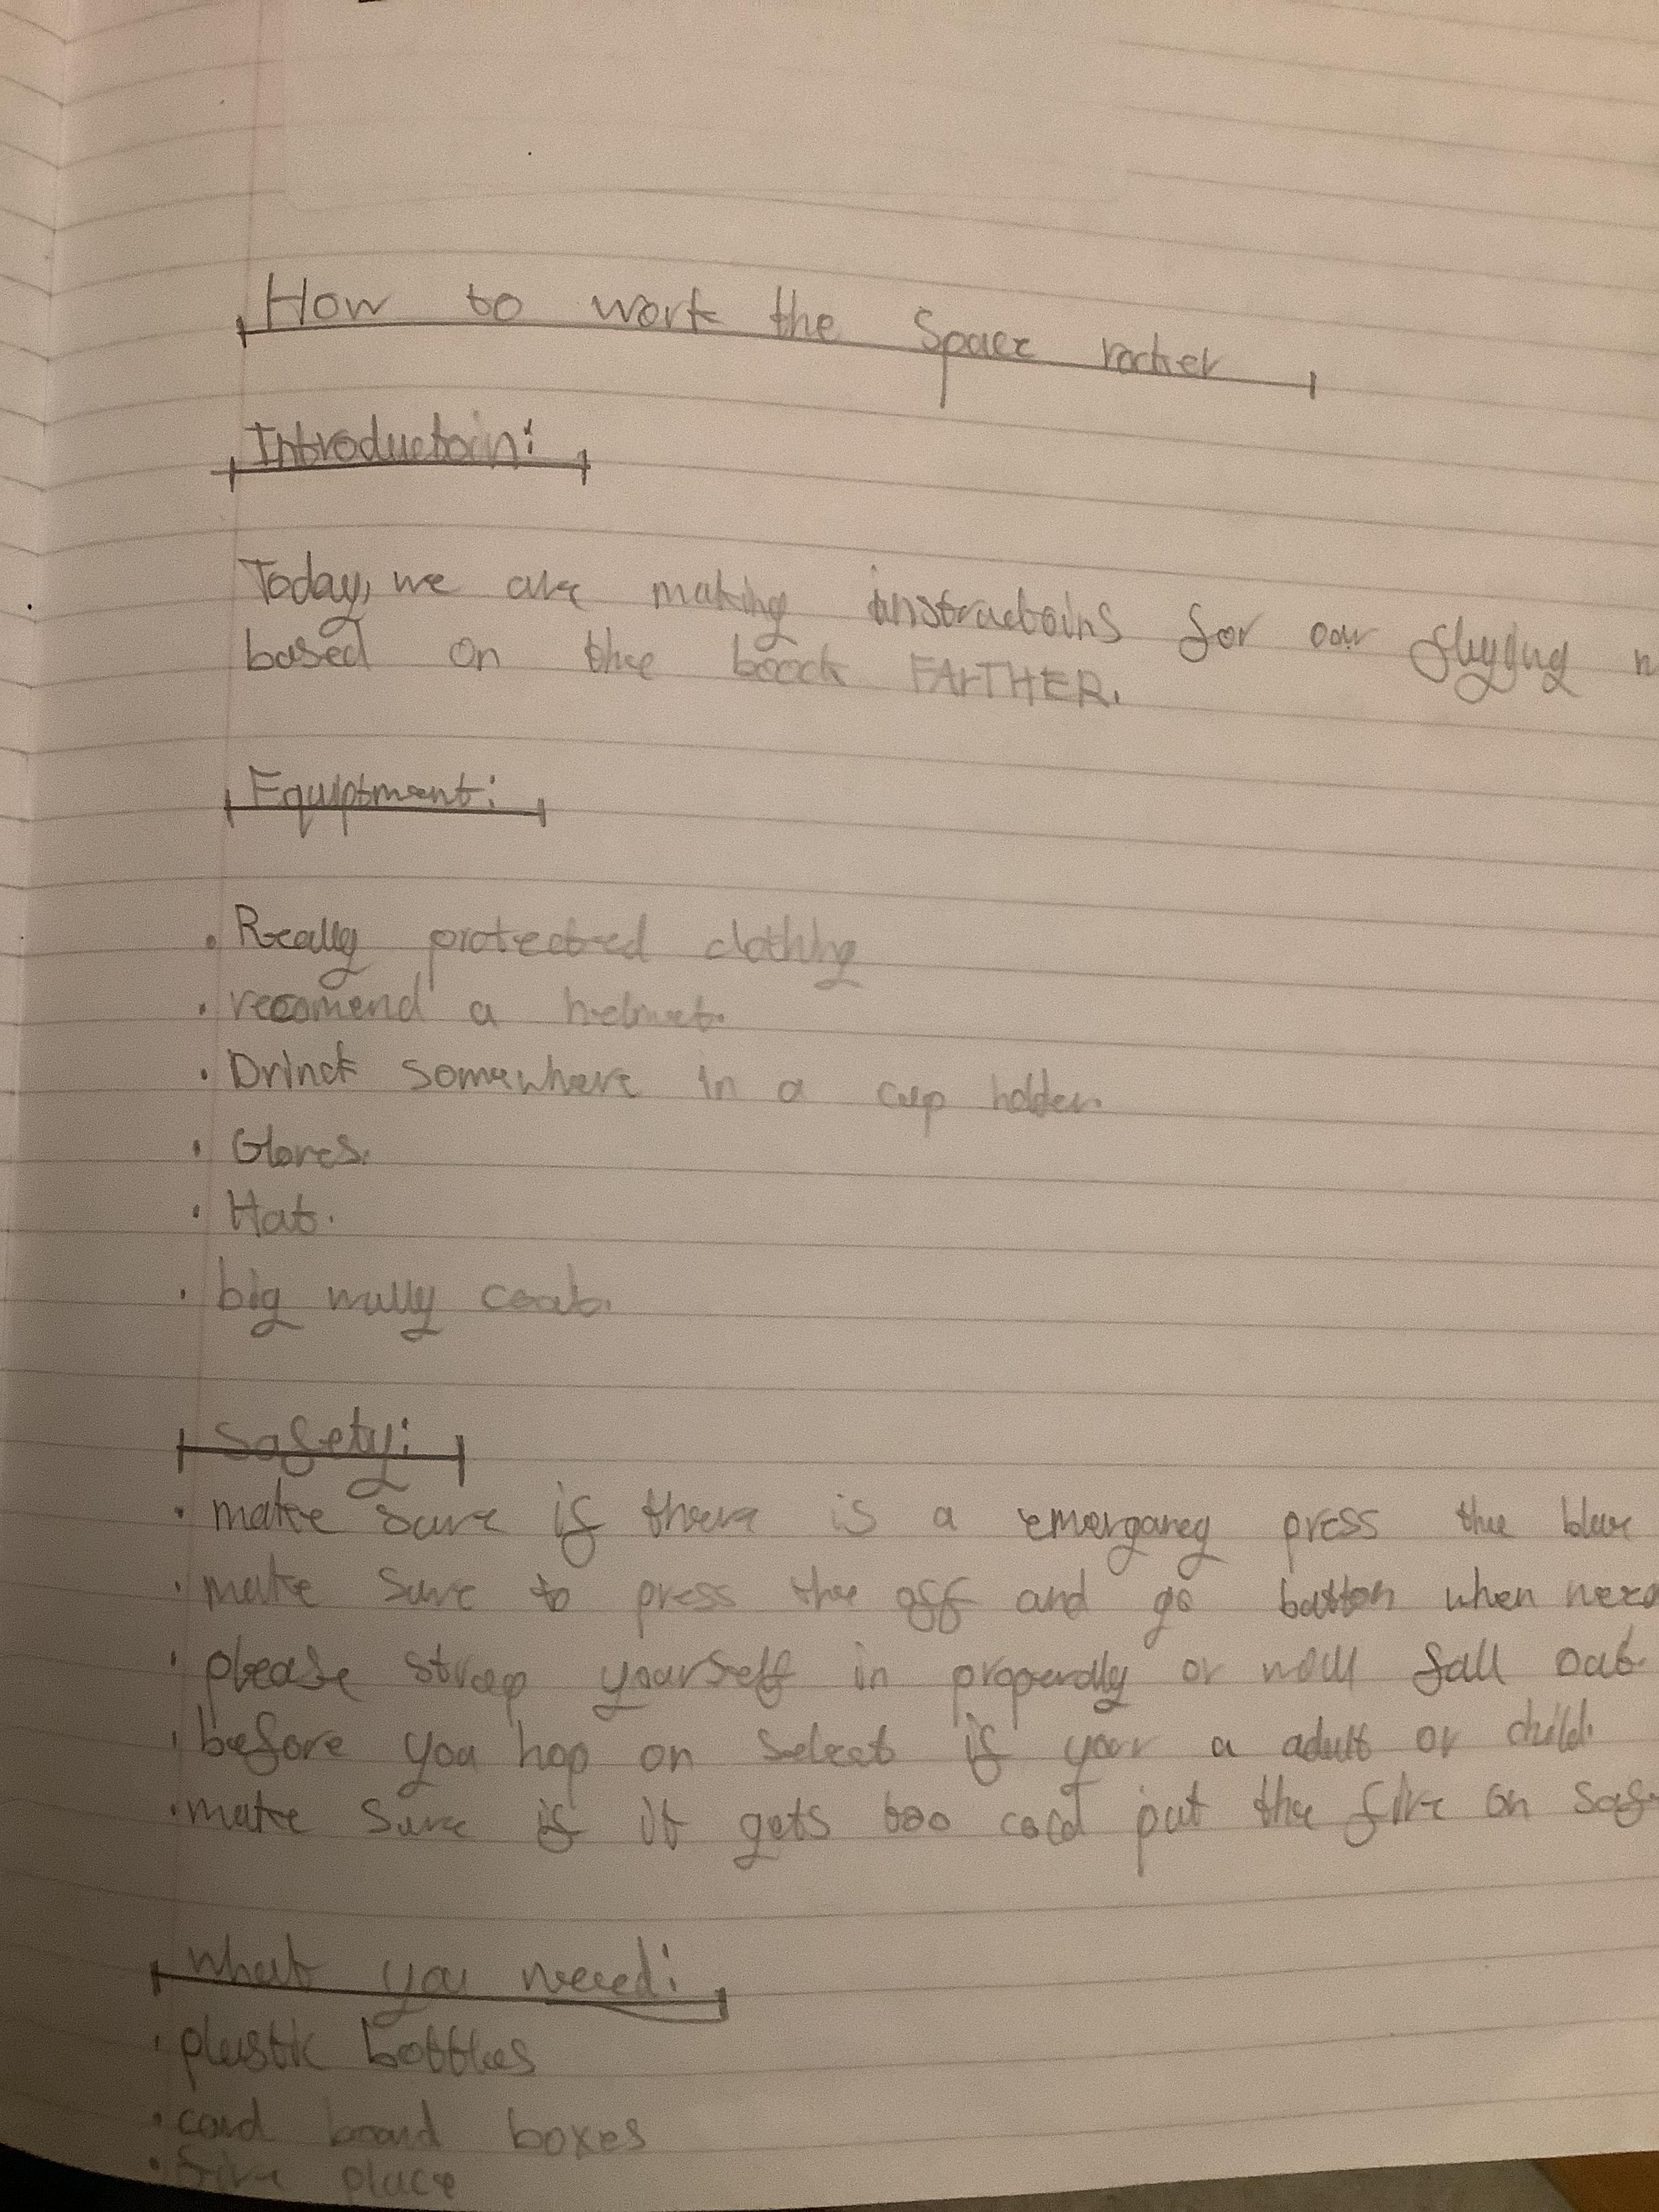 How to work the Space rocket
Introductoin:
Today, we are making instructoins for our flyying
based on the boock FARTHER.
Equiptment:
• Really protected clothing
• recomend a helmet.
• Drinck somewhere in a cup holder.
• Gloves.
• Hat.
• big wully coat.
Safety:
• make sure if there is a emergancy press the blue
• make sure to press the off and go button when
• please strap yourself in properdly or will fall out.
• before you hop on select if your a adult or child.
• make sure if it gets too cold put the fire on
what you need:
• plastic bottles
• card board boxes
• fire place